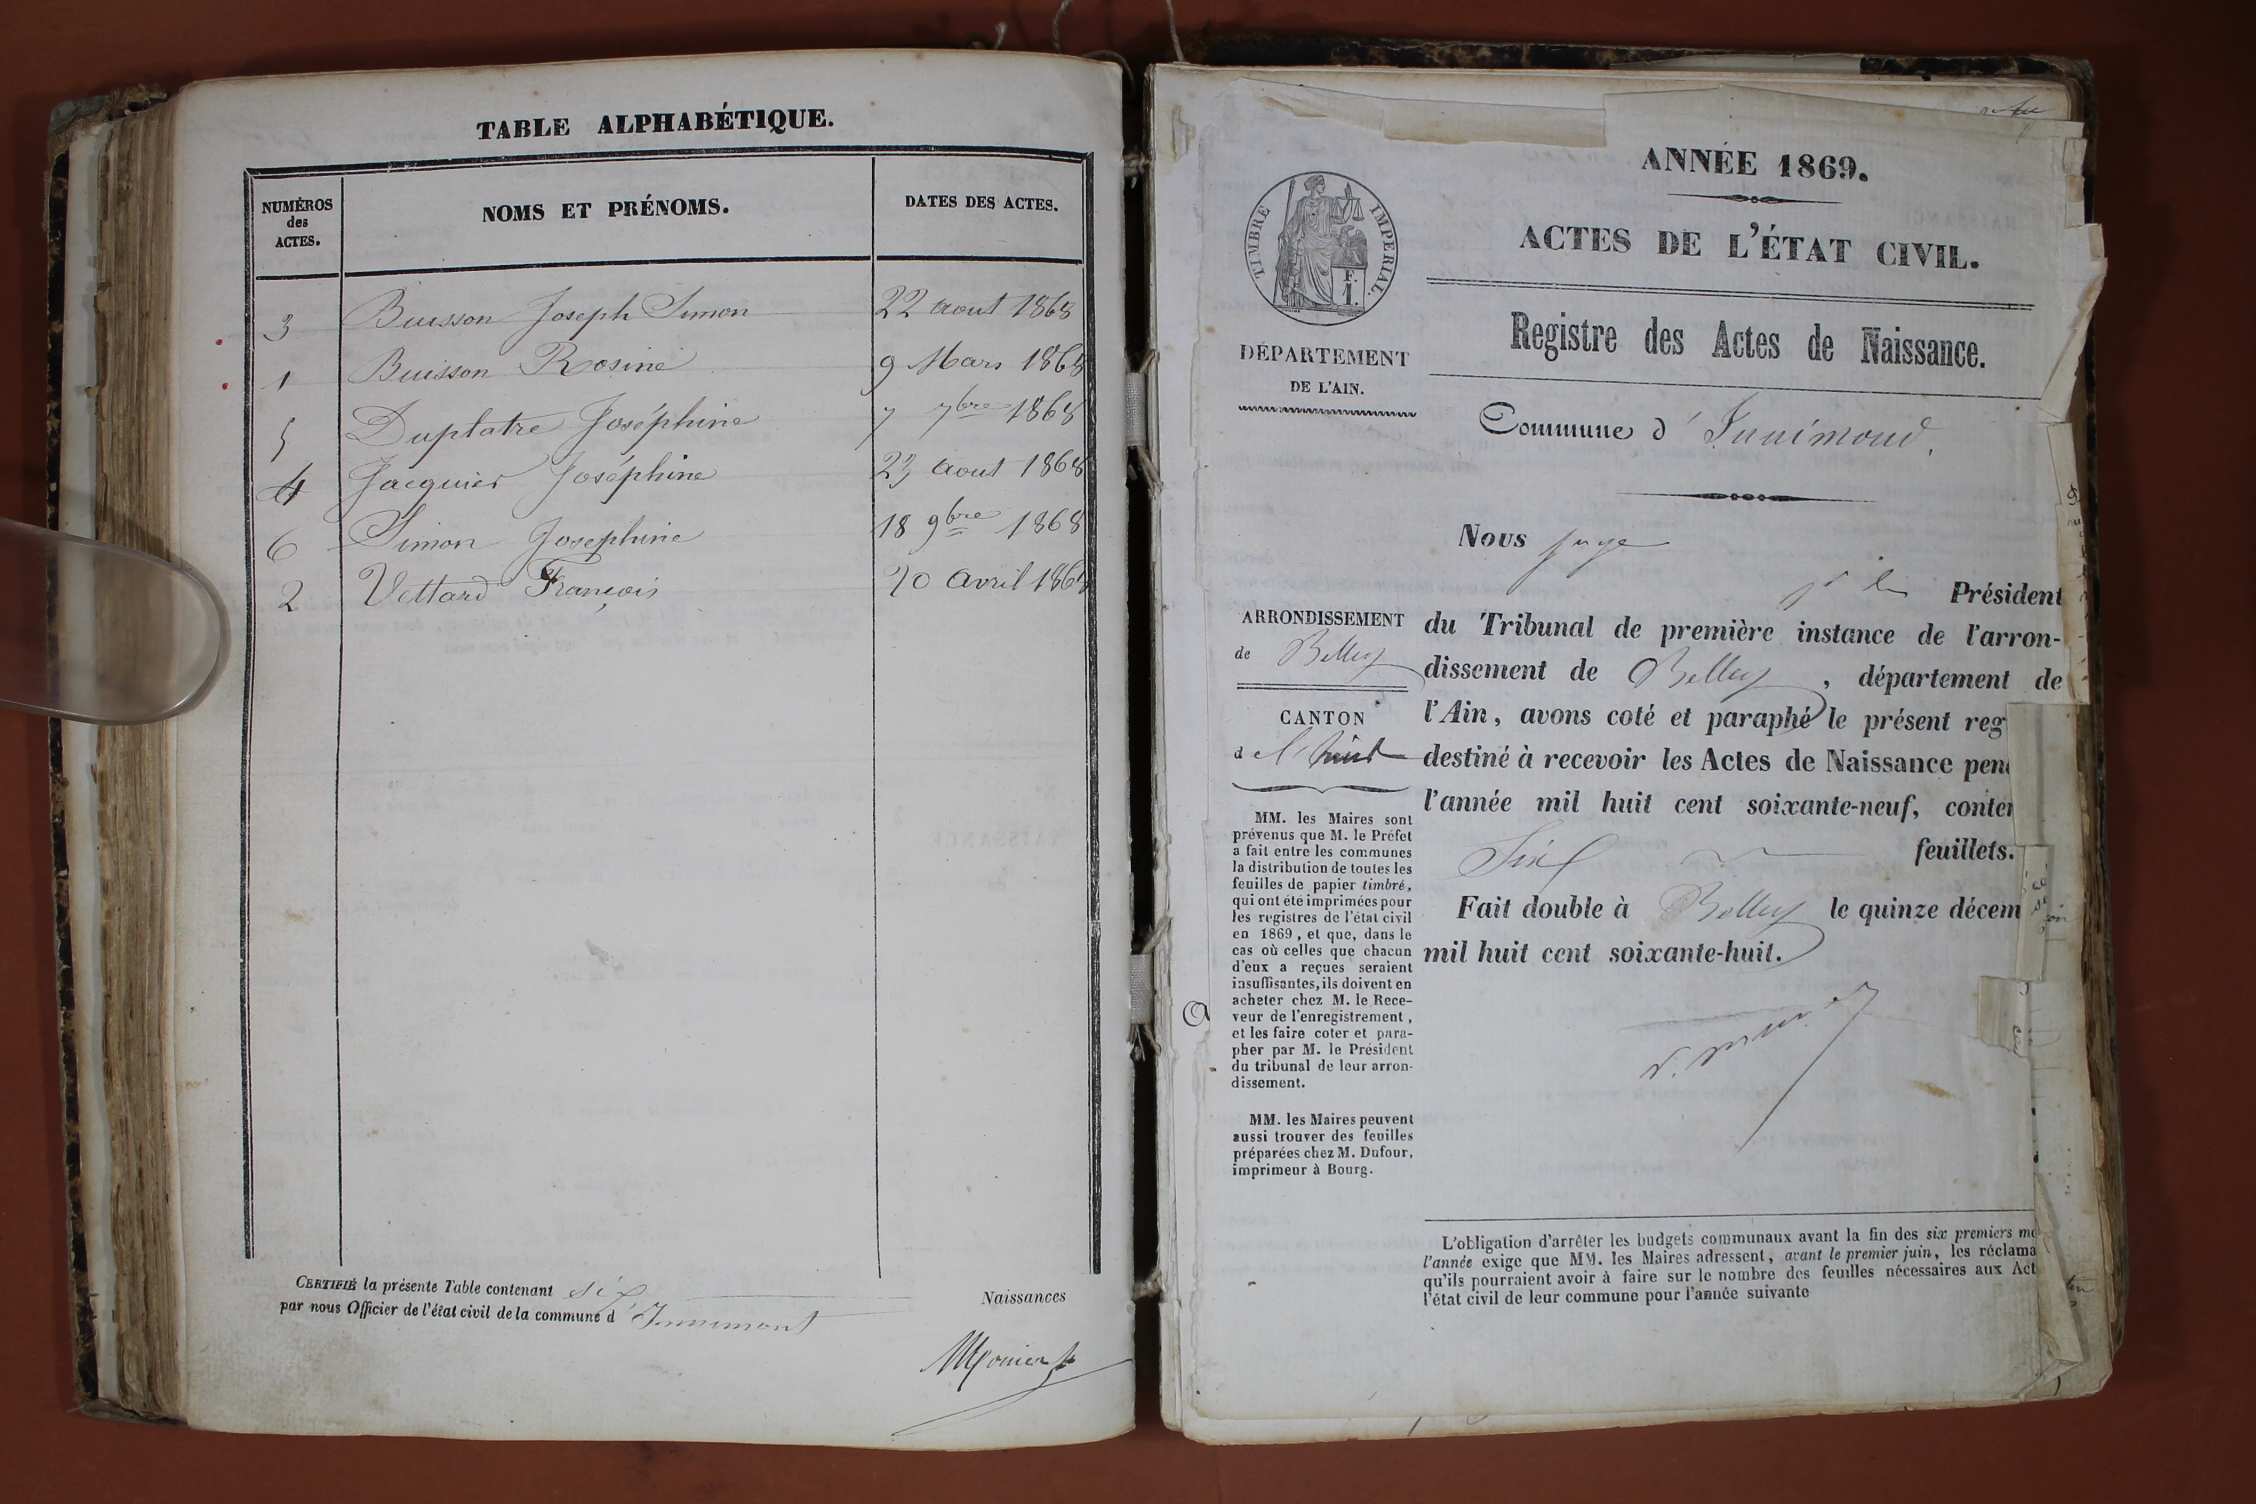 TABLE ALPHABÉTIQUE.
NUMÉROS
des
ACTES.
NOMS ET PRÉNOMS.
DATES DES ACTES.
3 Buisson Joseph Simon 22 aout 1868
1 Buisson Rosine 9 Mars 1868
5 Duplatre Joséphine 7 7bre 1868
4 Jacquier Joséphine 23 aout 1868
6 Simon Josephine 18 9bre 1868
2 Vettard François 20 avril 1868
CERTIFIÉ la présente Table contenant six Naissances
par nous Officier de l'état civil de la commune d'Innimont
ANNÉE 1869.
ACTES DE L'ÉTAT CIVIL.
Registre des Actes de Naissance.
Commune d'Innimond.
TIMBRE IMPERIAL
F.
1.
DÉPARTEMENT
DE L'AIN.
ARRONDISSEMENT
de Belley
CANTON
de
MM. les Maires sont
prévenus que M. le Préfet
a fait entre les communes
la distribution de toutes les
feuilles de papier timbré,
qui ont été imprimées pour
les registres de l'état civil
en 1869, et que, dans le
cas où celles que chacun
d'eux a reçues seraient
insuffisantes, ils doivent en
acheter chez M. le Rece-
veur de l'enregistrement,
et les faire coter et para-
pher par M. le Président
du tribunal de leur arron-
dissement.
MM. les Maires peuvent
aussi trouver des feuilles
préparées chez M. Dufour,
imprimeur à Bourg.
Nous juge
Président
du Tribunal de première instance de l'arron-
dissement de Belley, département de
l'Ain, avons coté et paraphé le présent reg
destiné à recevoir les Actes de Naissance pen
l'année mil huit cent soixante-neuf, conte
Six feuillets.
Fait double à Belley le quinze décem
mil huit cent soixante-huit.
L'obligation d'arrêter les budgets communaux avant la fin des six premiers mo
l'année exige que MM. les Maires adressent, avant le premier juin, les réclama
qu'ils pourraient avoir à faire sur le nombre des feuilles nécessaires aux Act
l'état civil de leur commune pour l'année suivante